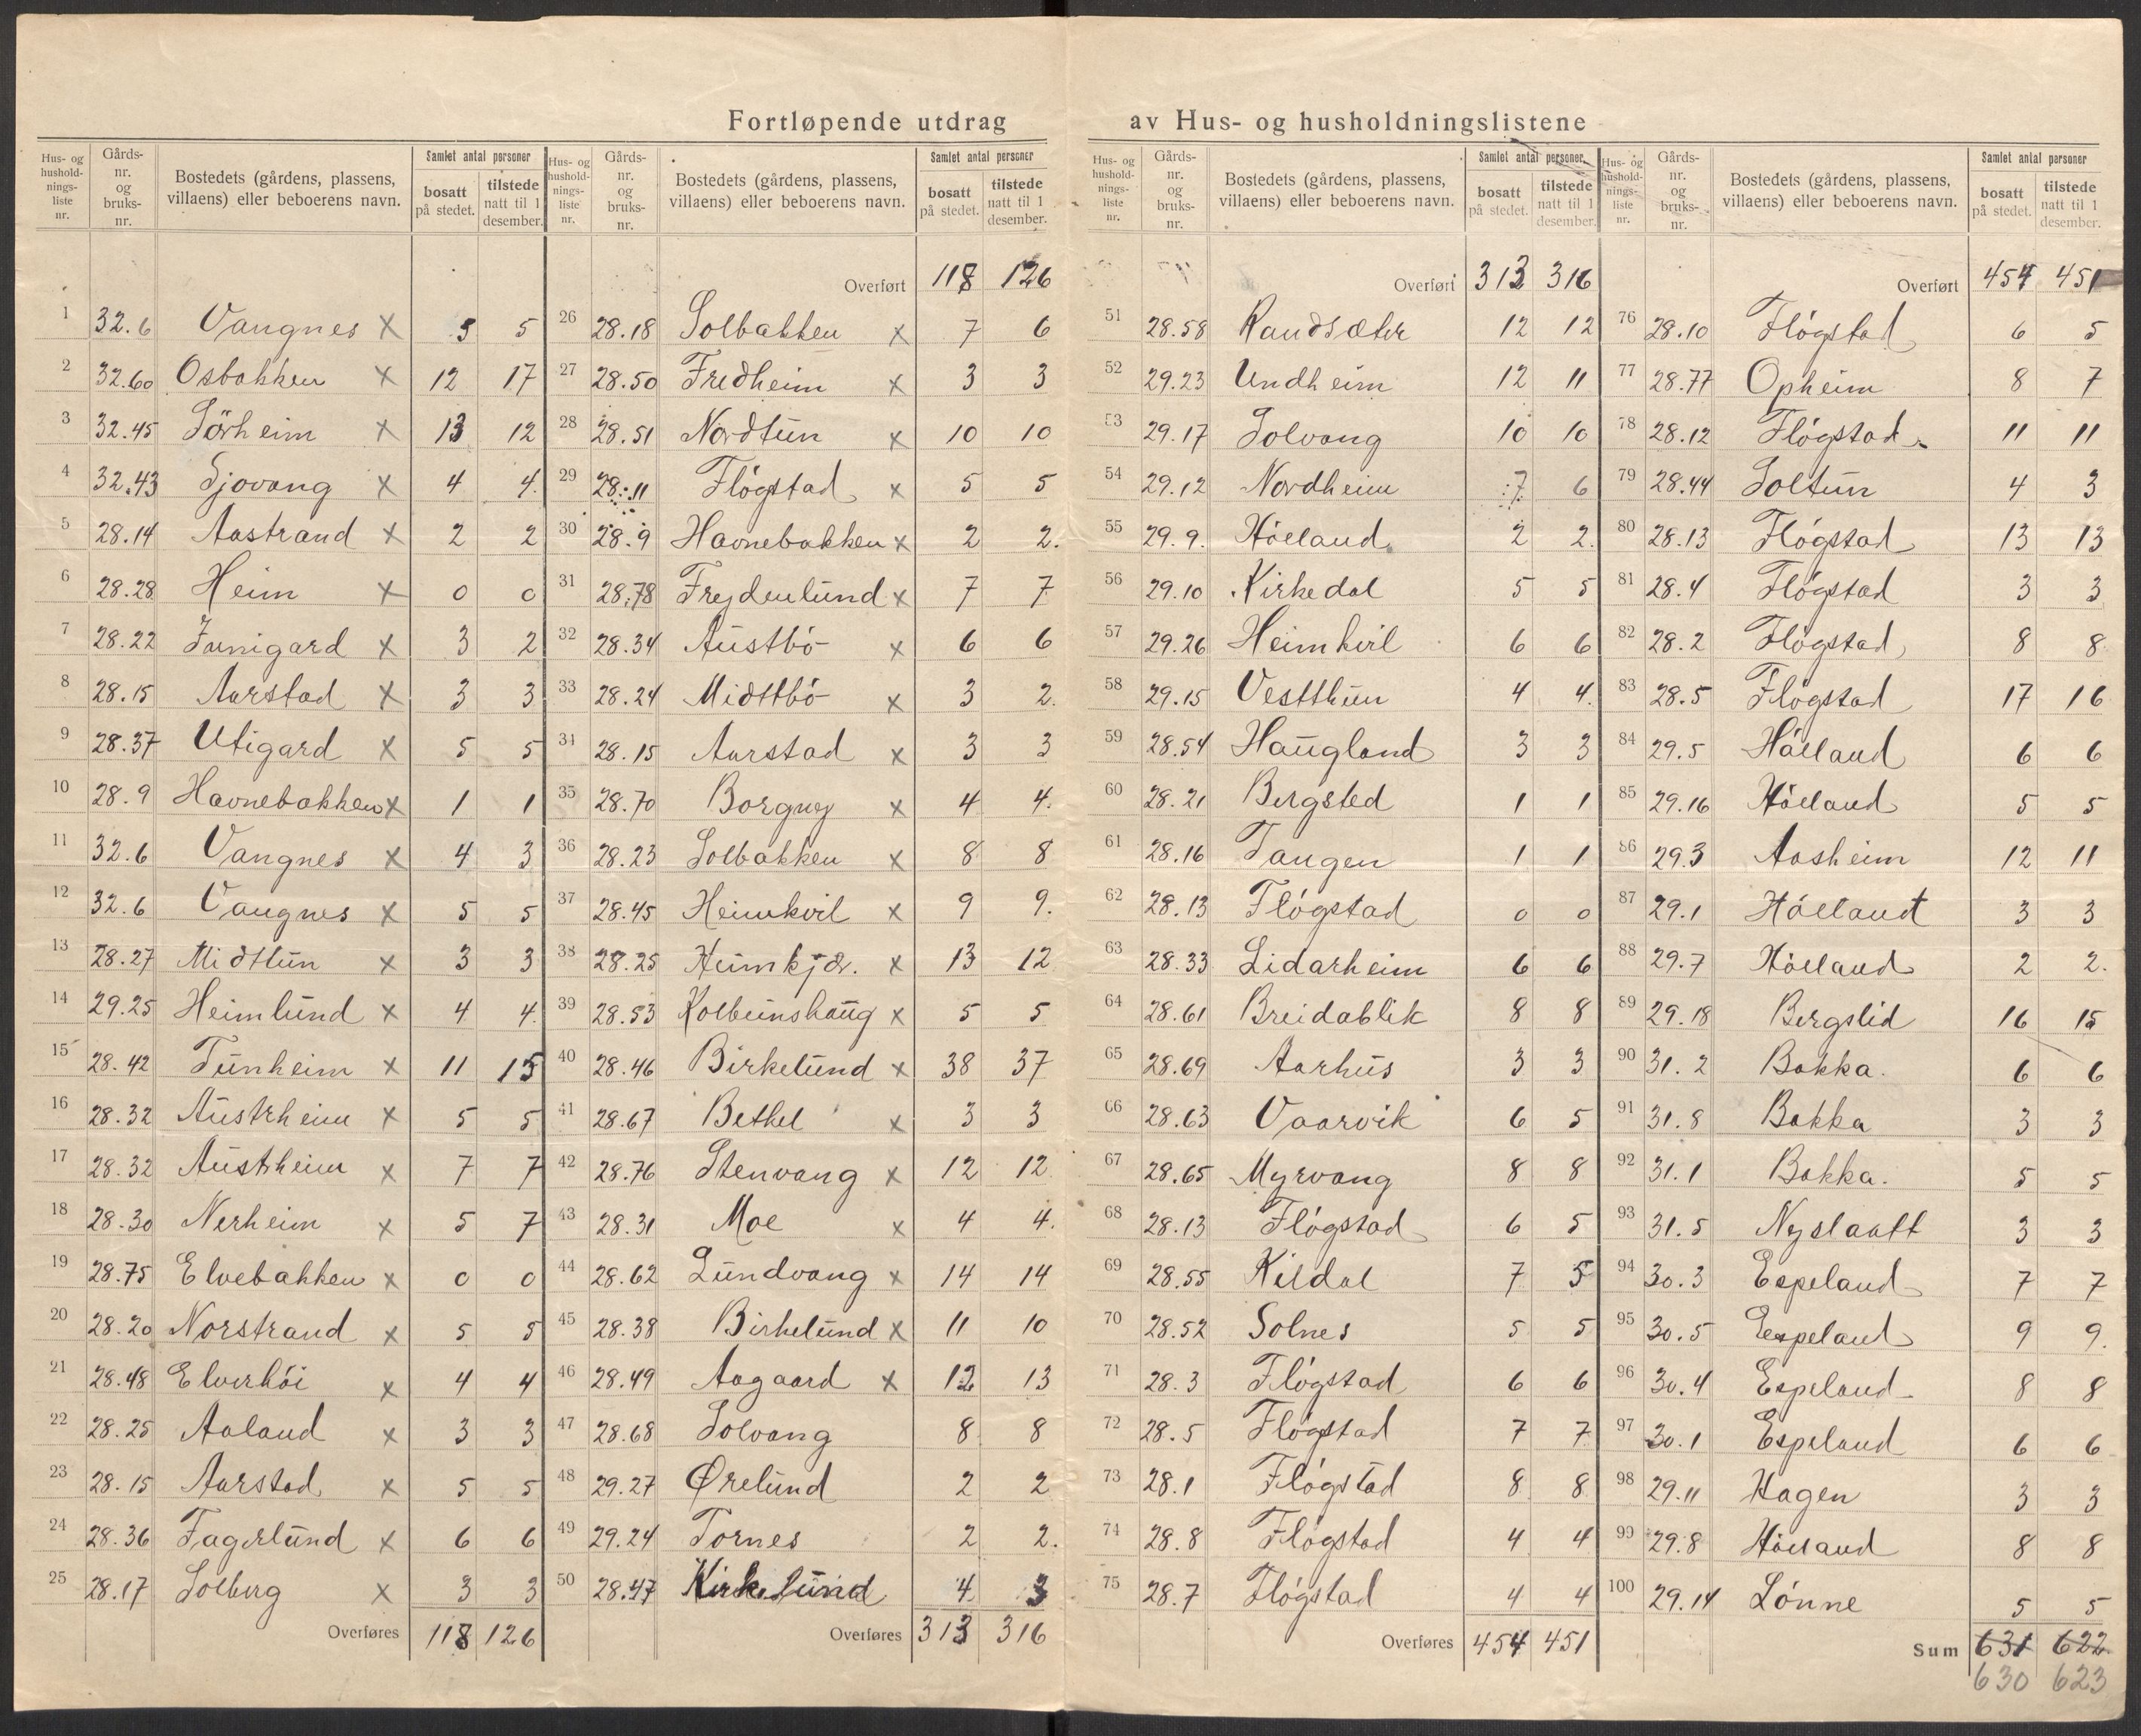 Fortløpende utdrag av Hus- og husholdningslistene
Hus- og hushold-nings-liste nr. Gårds-nr. og bruks-nr. Bostedets (gårdens, plassens, villaens) eller beboerens navn. Samlet antal personer bosatt på stedet. tilstede natt til 1 desember.
1 32.6 Vangnes x 5 5
2 32.60 Osbakken x 12 17
3 32.45 Sörheim x 13 12
4 32.43 Sjovang x 4 4.
5 28.14 Aastrand x 2 2
6 28.28 Heim x 0 0
7 28.22 Innigard x 3 2
8 28.15 Aarstad x 3 3
9 28.37 Utigard x 5 5
10 28.9 Havnebakken x 1 1
11 32.6 Vangnes x 4 3
12 32.6 Vangnes x 5 5
13 28.27 Midttun x 3 3
14 29.25 Heimlund x 4 4
15 28.42 Tunheim x 11 15
16 28.32 Austrheim x 5 5
17 28.32 Austrheim x 7 7
18 28.30 Nerheim x 5 7
19 28.75 Elvebakken x 0 0
20 28.20 Norstrand x 5 5
21 28.48 Elverhöi x 4 4
22 28.25 Aaland x 3 3
23 28.15 Aarstad x 5 5
24 28.36 Fagerlund x 6 6
25 28.17 Solberg x 3 3
Overføres 118 126
Hus- og hushold-nings-liste nr. Gårds-nr. og bruks-nr. Bostedets (gårdens, plassens, villaens) eller beboerens navn. Samlet antal personer bosatt på stedet. tilstede natt til 1 desember.
Overført 118 126
26 28.18 Solbakken x 7 6
27 28.50 Fredheim x 3 3
28 28.51 Nordtun x 10 10
29 28.11 Flögstad x 5 5
30 28.9 Havnebakken x 2 2.
31 28.78 Frydenlund x 7 7
32 28.34 Austbö x 6 6
33 28.24 Midttbö x 3 2.
34 28.15 Aarstad x 3 3
35 28.70 Borgny x 4 4.
36 28.23 Solbakken x 8 8
37 28.45 Heimkvil x 9 9.
38 28.25 Heimkjær. x 13 12
39 28.53 Kolbeinshaug x 5 5
40 28.46 Birkelund x 38 37
41 28.67 Bethel x 3 3
42 28.76 Stenvang x 12 12
43 28.31 Moe x 4 4.
44 28.62 Lundvang x 14 14
45 28.38 Birkelund x 11 10
46 28.49 Aagaard x 12 13
47 28.68 Solvang 8 8
48 29.27 Ørelund 2 2
49 29.24 Tornes 2 2.
50 28.47 Kirkelund 4 3
Overføres 313 316
Hus- og hushold-nings-liste nr. Gårds-nr. og bruks-nr. Bostedets (gårdens, plassens, villaens) eller beboerens navn. Samlet antal personer bosatt på stedet. tilstede natt til 1 desember.
Overført 313 316
51 28.58 Randsæter 12 12
52 29.23 Undheim 12 11
53 29.17 Solvang 10 10
54 29.12 Nordheim 7 6
55 29.9. Höeland 2 2.
56 29.10 Kirkedal 5 5
57 29.26 Heimkvil 6 6
58 29.15 Vestthun 4 4.
59 28.54 Haugland 3 3
60 28.21 Bergsted 1 1
61 28.16 Tangen 1 1
62 28.13 Flögstad 0 0
63 28.33 Lidarheim 6 6
64 28.61 Breidablik 8 8
65 28.69 Aarhus 3 3
66 28.63 Vaarvik 6 5
67 28.65 Myrvang 8 8
68 28.13 Flögstad 6 5
69 28.55 Kildal 7 5
70 28.52 Solnes 5 5
71 28.3 Flögstad 6 6
72 28.5 Flögstad 7 7
73 28.1 Flögstad 8 8
74 28.8 Flögstad 4 4
75 28.7 Flögstad 4 4
Overføres 454 451
Hus- og hushold-nings-liste nr. Gårds-nr. og bruks-nr. Bostedets (gårdens, plassens, villaens) eller beboerens navn. Samlet antal personer bosatt på stedet. tilstede natt til 1 desember.
Overført 454 451
76 28.10 Flögstad 6 5
77 28.77 Opheim 8 7
78 28.12 Flögstad 11 11
79 28.44 Soltun 4 3
80 28.13 Flögstad 13 13
81 28.4 Flögstad 3 3
82 28.2 Flögstad 8 8
83 28.5 Flögstad 17 16
84 29.5 Höeland 6 6
85 29.16 Höeland 5 5
86 29.3 Aasheim 12 11
87 29.1 Höelandt 3 3
88 29.7 Höeland 2 2.
89 29.18 Bergslid 16 15
90 31.2 Bakka. 6 6
91 31.8 Bakka 3 3
92 31.1 Bakka. 5 5
93 31.5 Nyslaatt 3 3
94 30.3 Espeland 7 7
95 30.5 Espeland 9 9.
96 30.4 Espeland 8 8
97 30.1 Espeland 6 6
98 29.11 Hagen 3 3
99 29.8 Höeland 8 8
100 29.14 Lönne 5 5
Sum 631 622
630 623